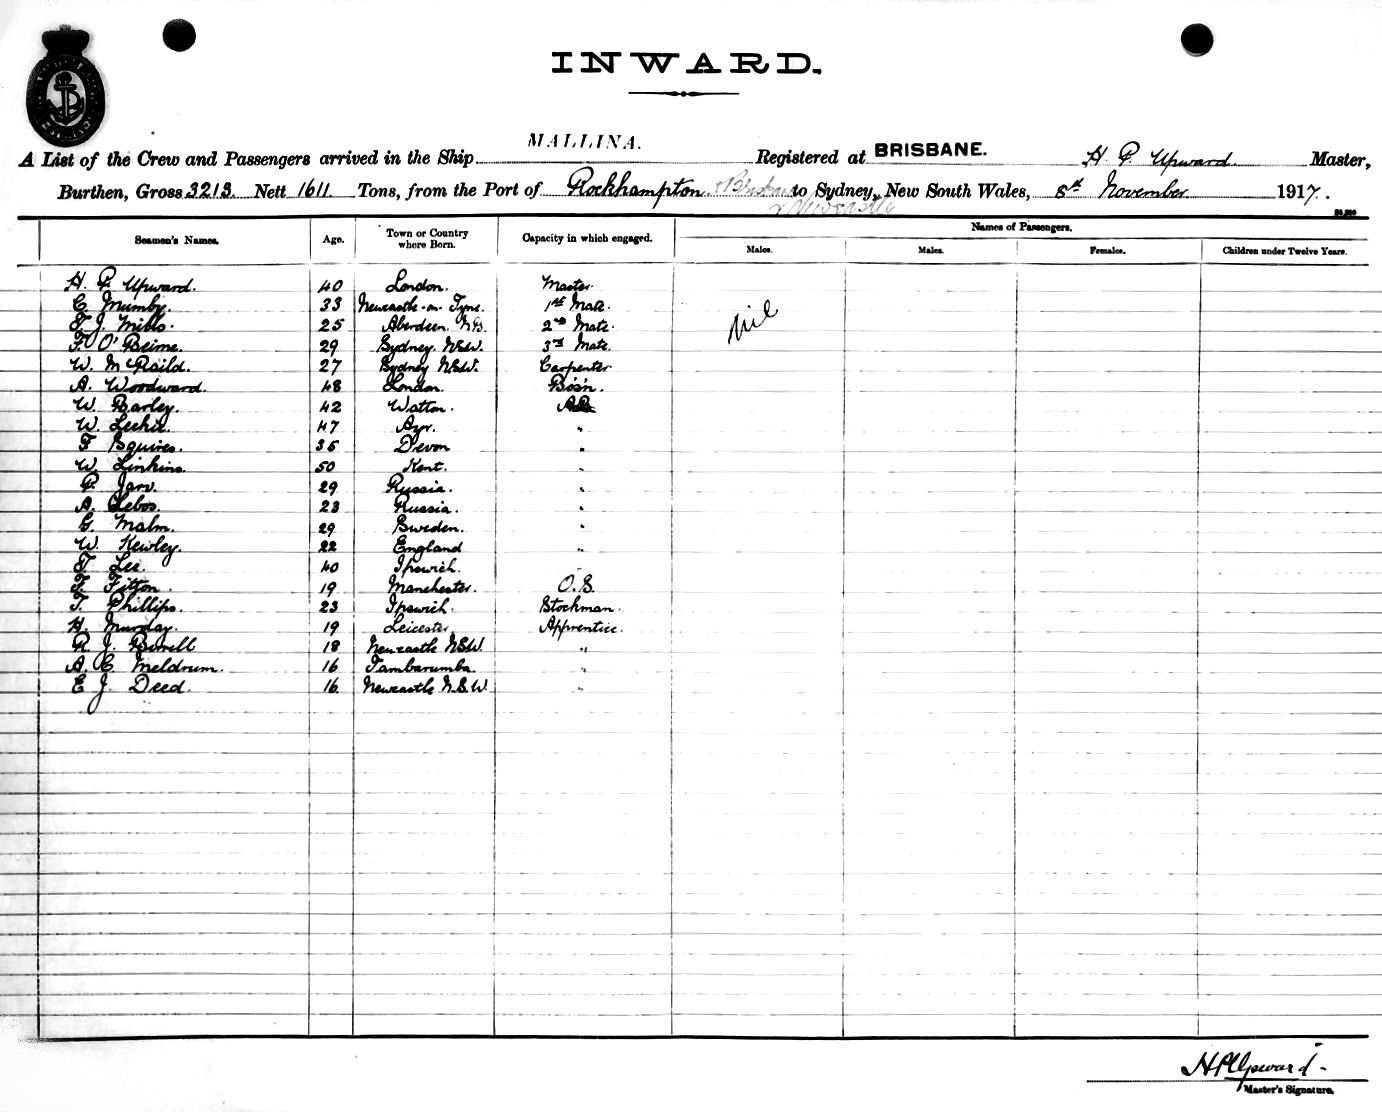 INWARD.
A List of the Crew and Passengers arrived in the Ship MALLINA. Registered at BRISBANE. H. P. Upward. Master,
Burthen, Gross 3213. Nett 1611 Tons, from the Port of Rockhampton & Brisbane to Sydney, New South Wales, 8th November 1917.
& Newcastle
Seamen's Names. Age. Town or Country where Born. Capacity in which engaged. Names of Passengers.
Males. Males. Females. Children under Twelve Years.
H. P. Upward. 40 London. Master.
C. Mumby. 33 Newcastle-on-Tyne. 1st Mate.
T. J. Mills. 25 Aberdeen. N.B. 2nd Mate. Nil
F. O'Beirne. 29 Sydney. N.S.W. 3rd Mate.
W. McPhaild. 27 Sydney N.S.W. Carpenter
A. Woodward. 48 London. Bos'n.
W. Barley. 42 Watton. A.B.
W. Leckie. 47 Ayr. "
F Squires. 35 Devon "
W. Linkins. 50 Kent. "
P. 29 Russia. "
A. Lebos. 23 Russia. "
G. Malm. 29 Sweden. "
W. Kewley. 22 England "
T. Lee. 40 Ipswich.
F. Fitton. 19 Manchester. O.S.
T. Phillips. 23 Ipswich. Stockman.
H. Munday. 19 Leicester Apprentice.
R. J. Burrell 18 Newcastle N.S.W. "
A. C. Meldrum. 16 Tambarumba. "
E J. Deed. 16. Newcastle N.S.W. "
H P Upward.
Master's Signature.